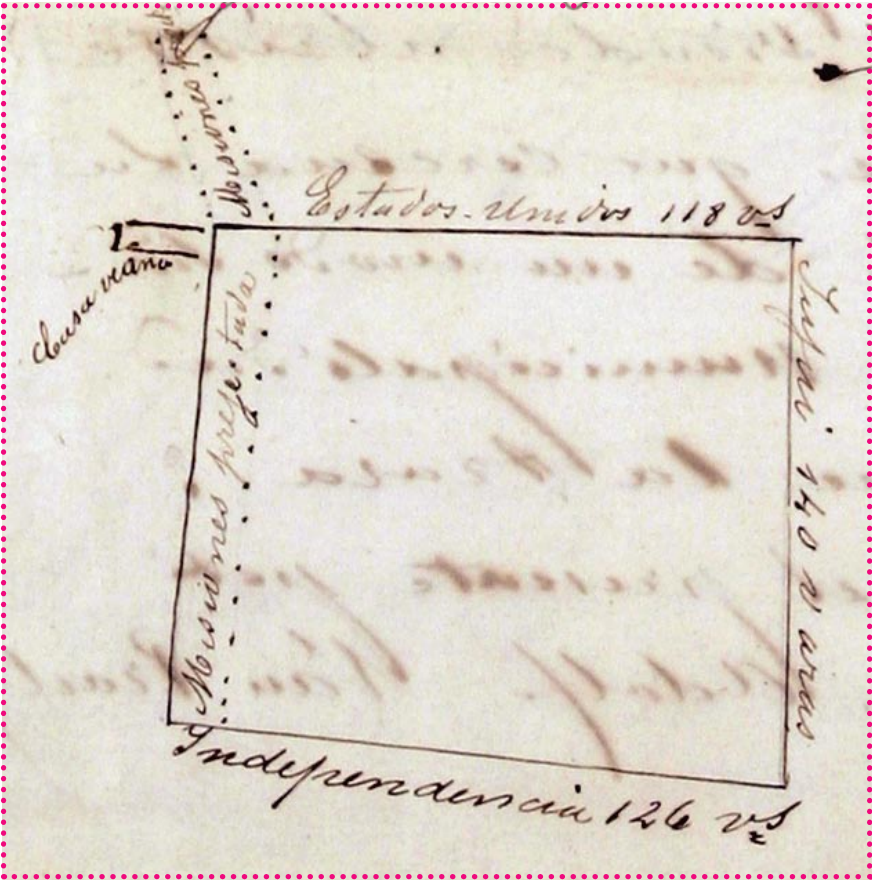 Misiones
Estados-Unidos 118 vs
Casa viana
Misiones projectada
Jujai 140 varas
Independencia 126 vs